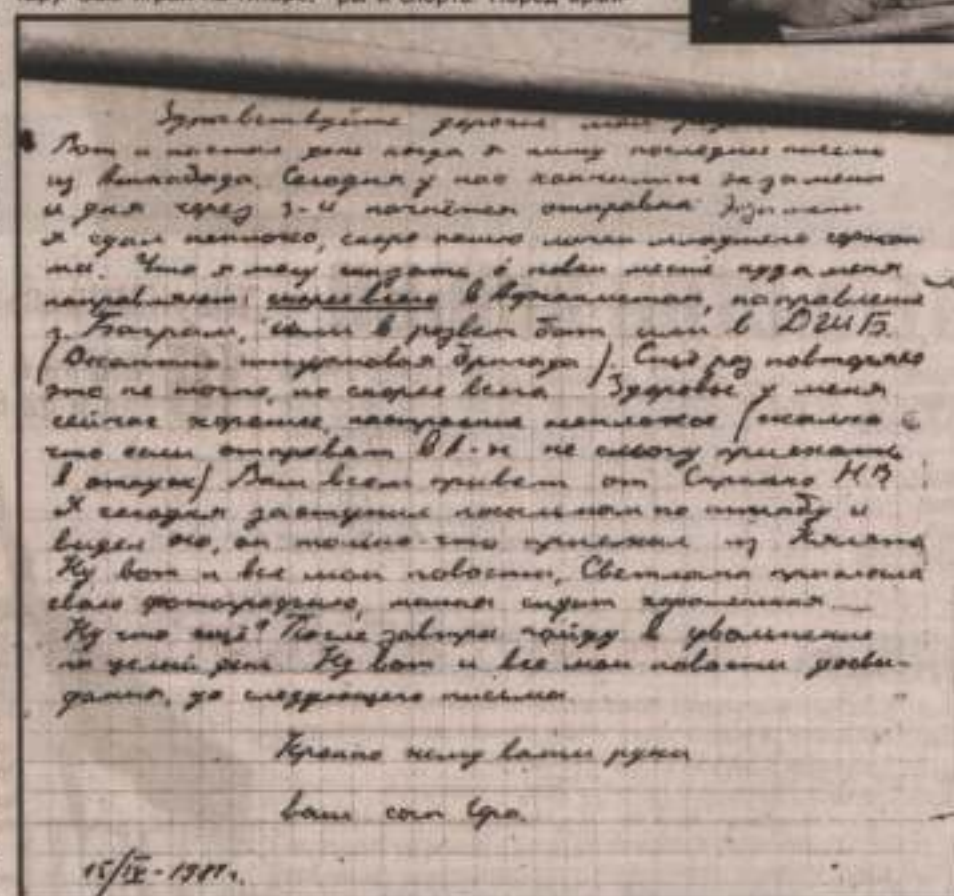 Здравствуйте дорогие мои
Вот и настал день когда я пишу последнее письмо
из Ашхабада. Сегодня у нас кончились экзамены
и дня через 3-4 начнётся отправка. Экзамены
я сдал неплохо, скоро
Что я могу сказать о новом месте куда меня
направляют: скорее всего в Афганистан, направление
г. Баграм, или в развед бат или в ДШБ.
(Десантно штурмовая бригада). Ещё раз повторяю
это не точно, но скорее всего. Здоровье у меня
сейчас хорошее, настроение неплохое (жалко
что если отправят в А-н не смогу приехать
в отпуск) Вам всем привет от Н.В.
Я сегодня заступил посыльным по штабу и
видел его, он только-что приехал из
Ну вот и все мои новости, Светлана прислала
свою фотографию, сидит хорошенькая
Ну что ещё? После завтра пойду в увольнение
на целый день. Ну вот и все мои новости досви-
дания, до следующего письма.
Крепко жму ваши руки
ваш сын
15/IV-198